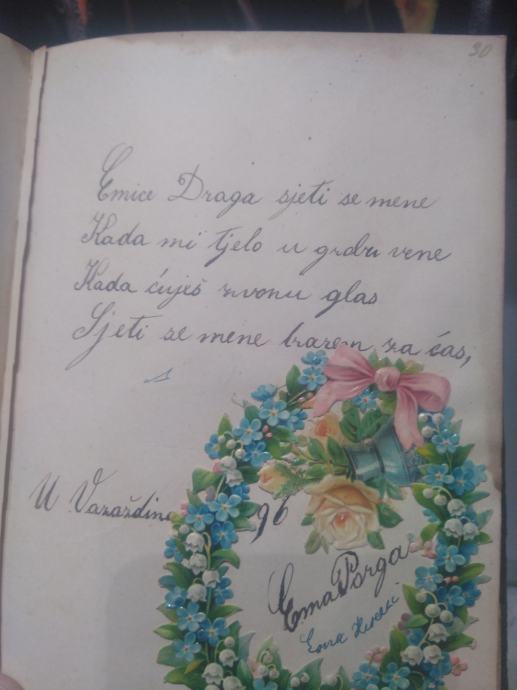 30
Emice Draga sjeti se mene
Kada mi tjelo u grobu vene
Kada ćuješ zvonu glas
Sjeti se mene barem za ćas,
U Varaždinu 96
Ema Porga
Ema